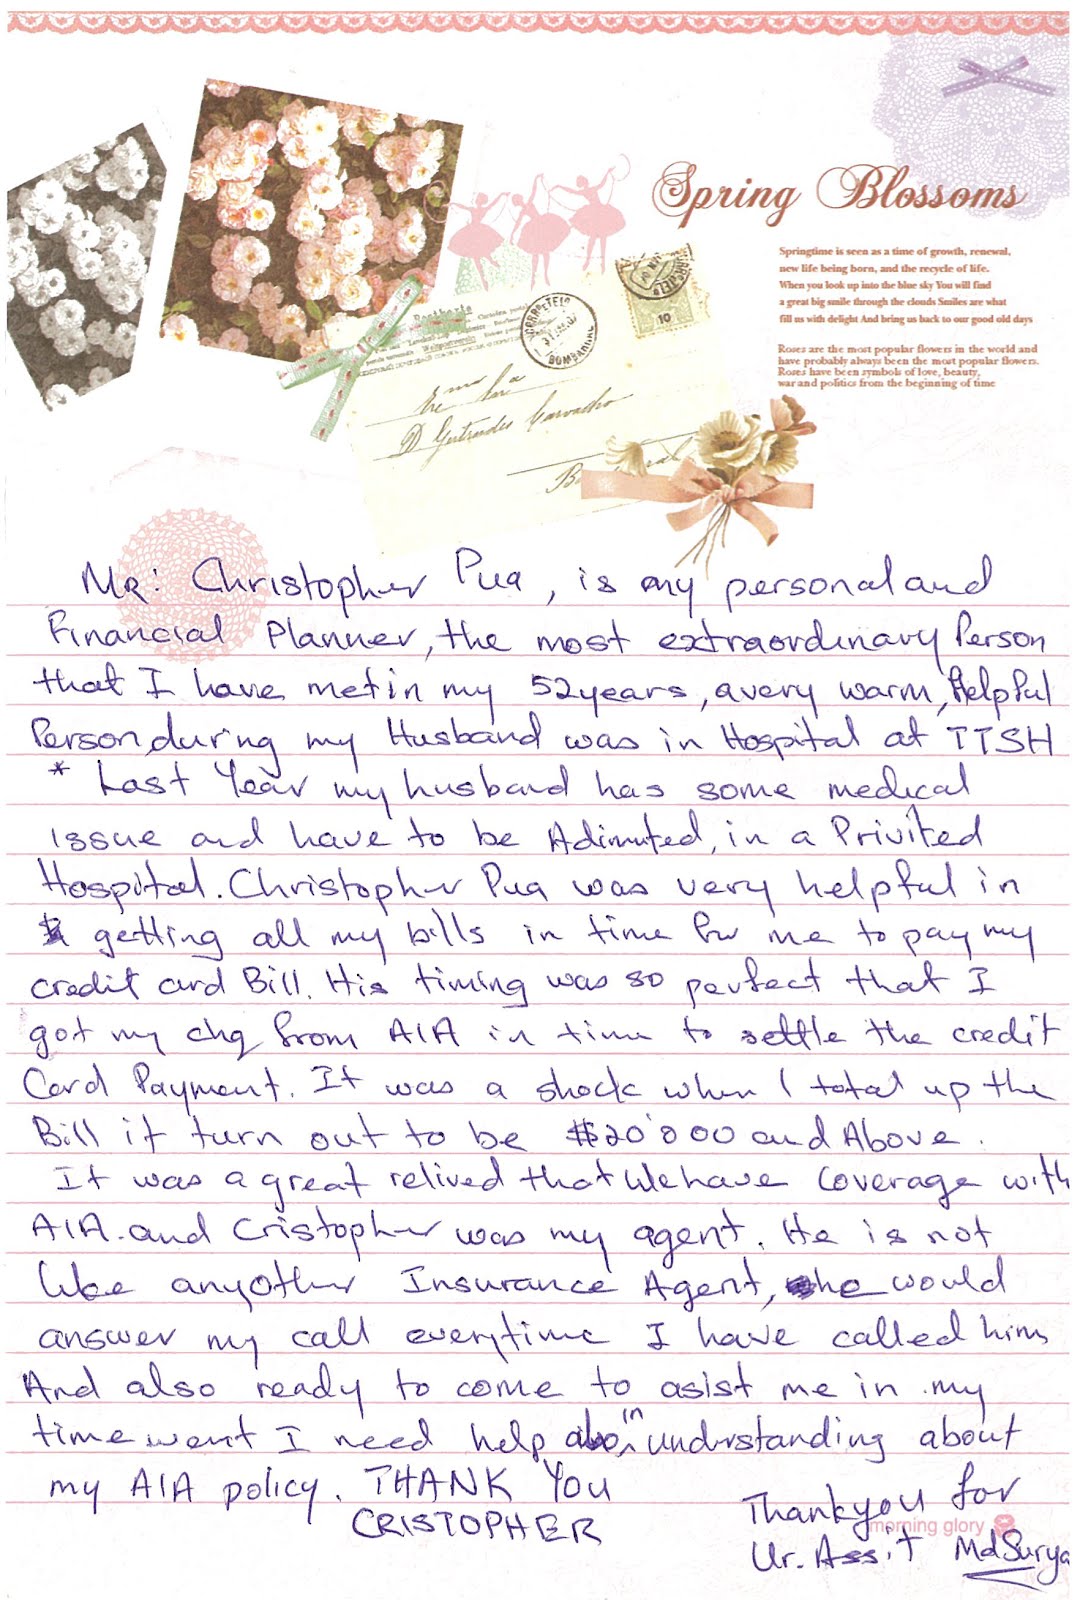 Spring Blossoms
Springtime is seen as a time of growth, renewal,
new life being born, and the recycle of life.
When you look up into the blue sky You will find
a great big smile through the clouds Smiles are what
fill us with delight And bring us back to our good old days
Roses are the most popular flowers in the world and
have probably always been the most popular flowers.
Roses have been symbols of love, beauty,
war and politics from the beginning of time
10
D Gertrudes Carvalho
Mr: Christopher Pua, is my personal and
Financial Planner, the most extraordinary Person
that I have met in my 52 years, a very warm, Helpful
Person, during my Husband was in Hospital at TTSH
* Last Year my husband has some medical
issue and have to be Adimited, in a Privited
Hospital. Christopher Pua was very helpful in
getting all my bills in time for me to pay my
credit card Bill. His timing was so perfect that I
got my chq from AIA in time to settle the credit
Card Payment. It was a shock when I total up the
Bill it turn out to be $20'000 and Above.
It was a great relived that We have Coverage with
AIA. and Cristopher was my agent. He is not
like anyother Insurance Agent, he would
answer my call everytime I have called him,
And also ready to come to asist me in my
time went I need help in understanding about
my AIA policy. THANK YOU
CRISTOPHER
Thankyou for
Ur. Assit MdSurya
morning glory